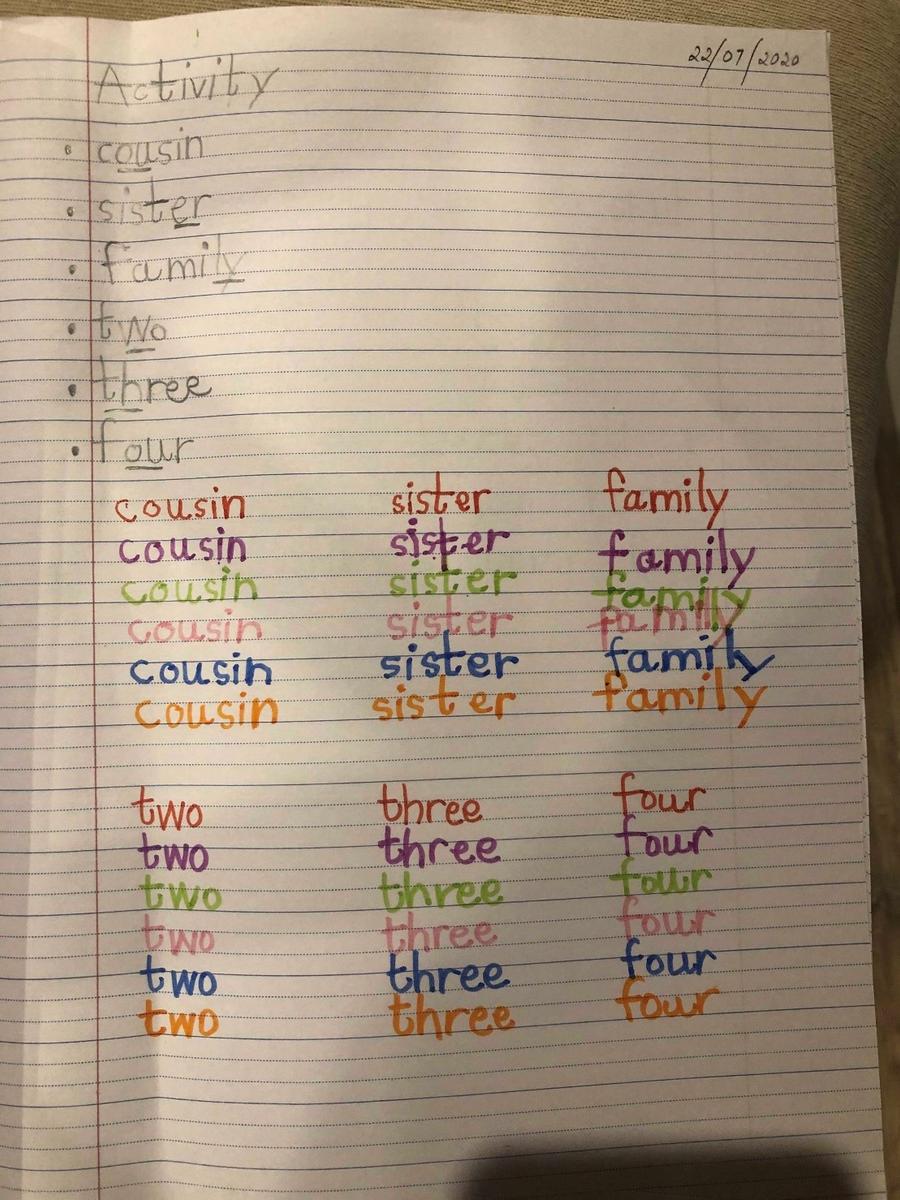 22/07/2020
Activity
• cousin
• sister
• family
• two
• three
• four
cousin sister family
cousin sister family
cousin sister family
cousin sister family
cousin sister family
cousin sister family
two three four
two three four
two three four
two three four
two three four
two three four